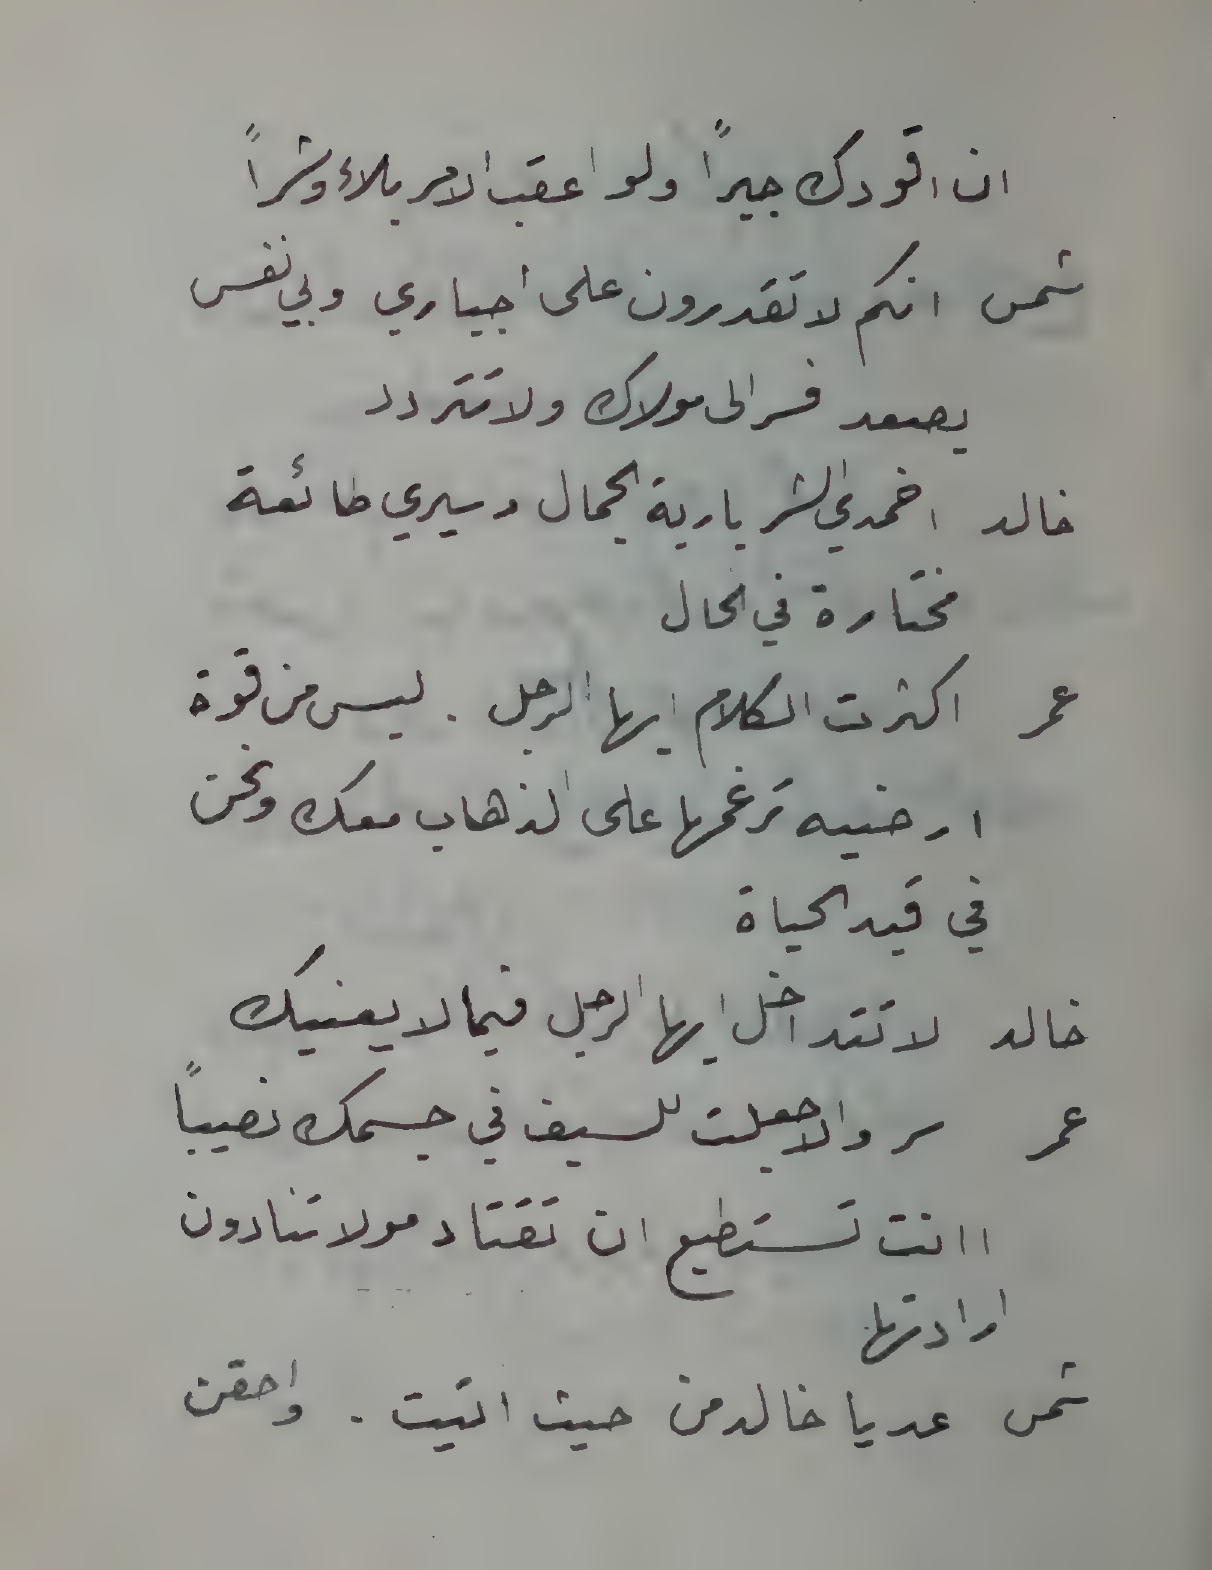 ان اقودك جبراً ولو اعقب الامر بلاءً وشراً
شمس انكم لا تقدرون على اجباري وبي نفس
يصعد فسر الى مولاك ولا تتردد
خالد اخمدي الشر يا ربة الجمال وسيري طائعة
مختارة في الحال
عمر اكثرت الكلام ايها الرجل . ليس من قوة
ارضيه ترغمها على الذهاب معك ونحن
في قيد الحياة
خالد لا تتداخل ايها الرجل فيما لا يعنيك
عمر سر والا جعلت للسيف في جسمك نصيباً
اانت تستطيع ان تقتاد مولاتنا دون
ارادتها
شمس عد يا خالد من حيث اتيت . واحقن